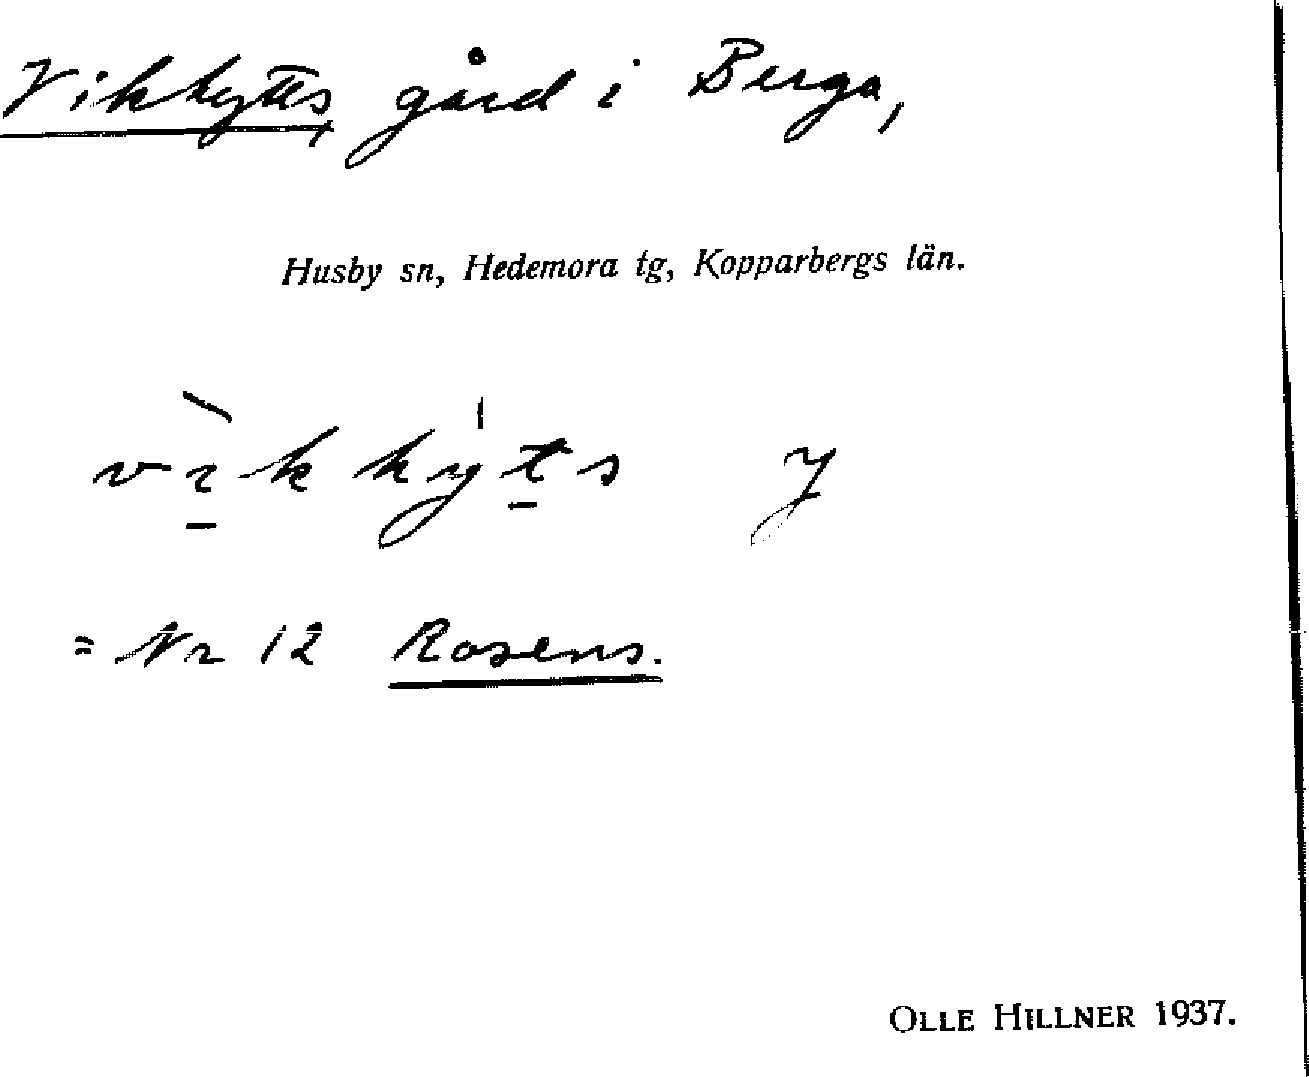 Vikhytts, gård i Berga,
Husby sn, Hedemora tg, Kopparbergs län.
vìk hy̍ts J
= Nr 12 Rosens.
OLLE HILLNER 1937.